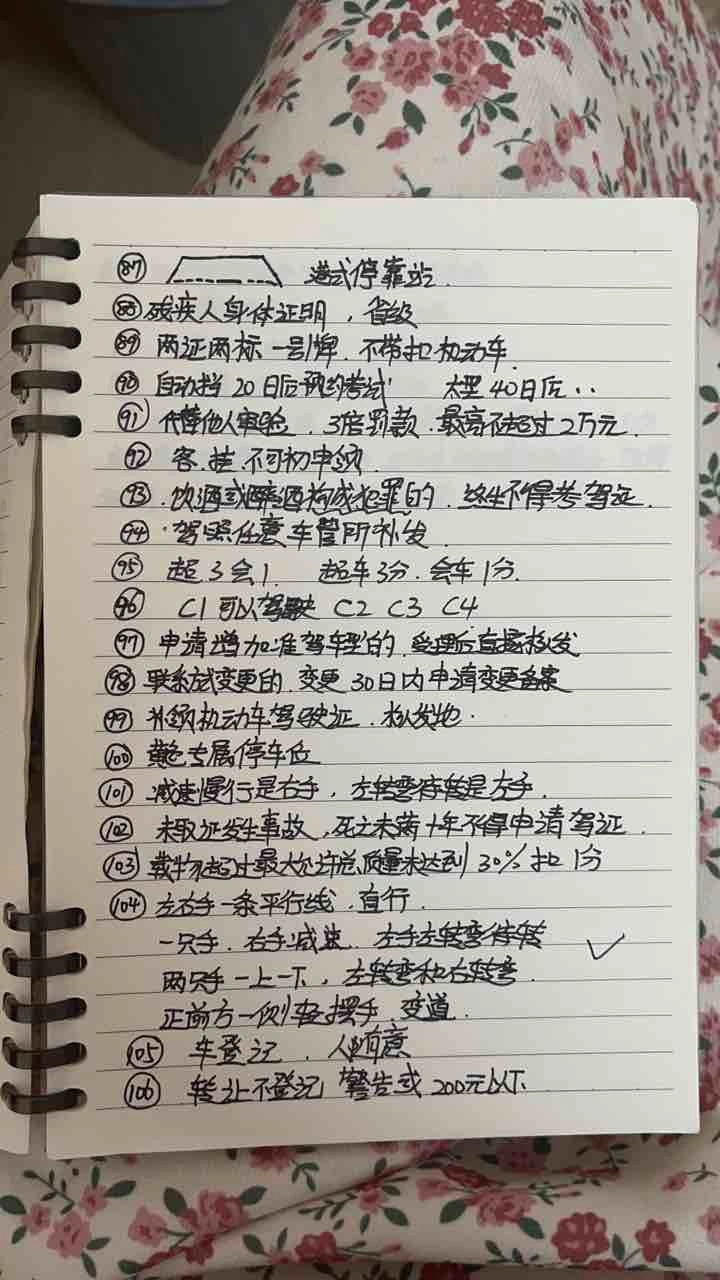 87 港式停靠站.
88 残疾人身体证明，省级
89 两证两标一号牌.不带扣机动车.
90 自动挡 20日后预约考试 大型40日后..
91 代替他人审验.3倍罚款.最高不超过2万元.
92 客.挂.不可初申领.
93 .饮酒或醉酒构成犯罪的.终生不得考驾证.
94 .驾照任意车管所补发.
95 超3会1. 超车3分.会车1分.
96 C1可以驾驶 C2 C3 C4
97 申请增加准驾车型的.受理后直接核发
98 联系方式变更的.变更30日内申请变更备案
99 补领机动车驾驶证.核发地.
100 黄色专属停车位
101 .减速慢行是右手，左转弯待转是左手.
102 未取证发生事故，死亡未满十年不得申请驾证.
103 载物超过最大允许总质量未达到30% 扣1分
104 左右手一条平行线.直行.
一只手.右手减速.左手左转弯待转
两只手一上一下，左转弯和右转弯.
正前方一侧轻摆手.变道.
105 车登记.人有意
106 转让不登记 警告或200元以下.